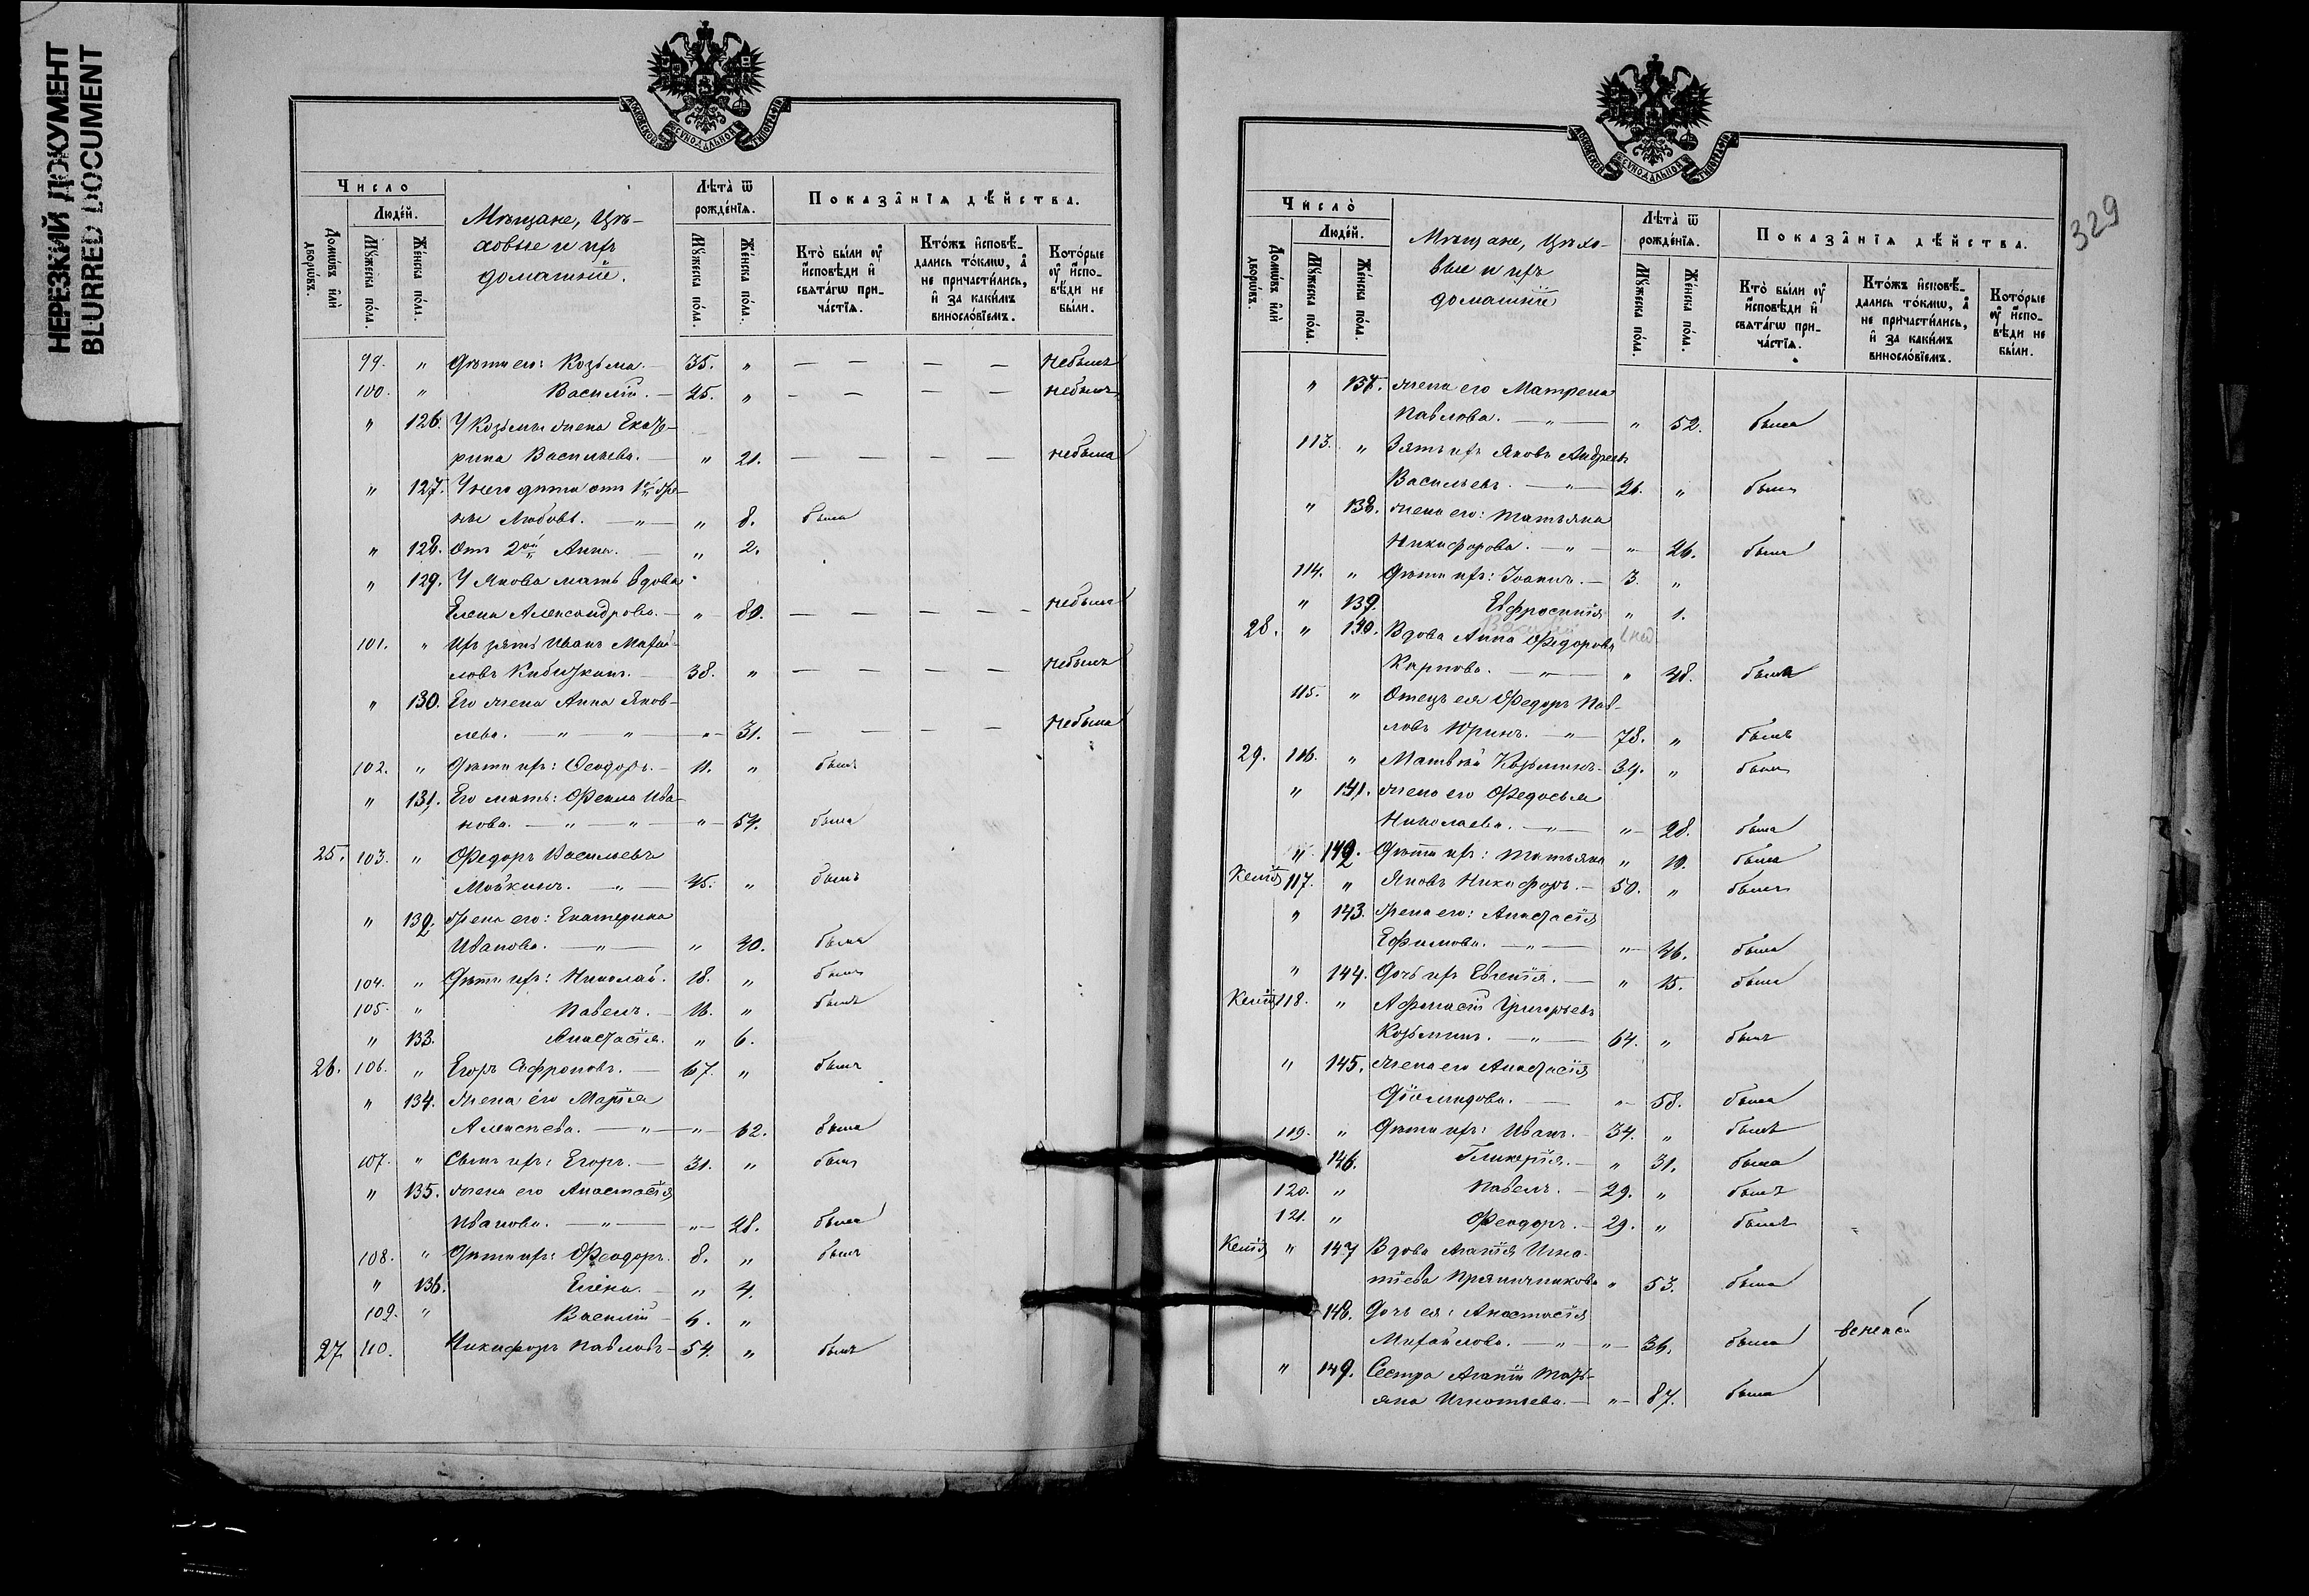 НЕРЕЗКИЙ ДОКУМЕНТ
BLURRED DOCUMENT
МОСКОВСКОЙ СѴНОДАЛЬНОЙ ТИПОГРАФІИ
Число
Людей.
Домо́въ и҆лѝ дворѡ́въ.
Мꙋ́жеска по́ла.
Же́нска по́ла.
Мѣщане, Цѣ-
ховые и ихъ
домашніе.
Лѣта̀ ѿ рожде́нїѧ.
Мꙋ́жеска по́ла.
Же́нска по́ла.
Показа̑нїѧ дѣ́йства.
Кто̀ бы́ли ᲂу҆ и҆сповѣ́ди и҆ свѧта́гѡ при-ча́стїѧ.
Кто́жъ и҆сповѣ́-дались то́кмѡ, а҆ не причасти́лись, и҆ за каки́мъ виносло́вїемъ.
Кото́рые ᲂу҆ и҆спо-вѣ́ди не бы́ли.
99. " Дѣти его: Козьма. 35. " — — — — небылъ
100. " Василій. — 25. " — — — — небылъ
" 126. У Козьмы жена Екате-
рина Васильева. — " 21. — — — — небыла
" 127. У него дѣти отъ 1й же-
ны Любовь. — " — " 8. была
" 128. Отъ 2ой Анна. — " 2.
" 129. У Якова мать вдова
Елена Александрова. — " 80. — — — — небыла
101. " Ихъ зять Иванъ Михай-
ловъ 38. " — — — — небылъ
" 130. Его жена Анна Яков-
лева. — " — " — " 31. — — — — небыла
102. " Дѣти ихъ: Ѳеодоръ. — 11. " былъ
" 131. Его мать: Фекла Ива-
нова. — " — " — " 54. была
25. 103. " Федоръ Васильевъ
Мойкинъ. — " — 45. " былъ
" 132. Жена его: Екатерина
Иванова. — " — " 40. была
104. " Дѣти ихъ: Николай. 18. " былъ
105. " Павелъ. — 16. " былъ
" 133. Анастасія. " 6.
26. 106. " Егоръ Софроновъ. — 67. " былъ
" 134. Жена его Марія
Алексѣева. — " — " 62. была
107. " Сынъ ихъ: Егоръ. — 31. " былъ
" 135. Жена его Анастасія
Иванова. — " — " 28. была
108. " Дѣти ихъ: Феодоръ. 8. " былъ
" 136. Елена. — " 4.
109. " Василій — 6. "
27. 110. Никифоръ Павловъ — 54. " былъ
329
МОСКОВСКОЙ СѴНОДАЛЬНОЙ ТИПОГРАФІИ
Число̀
Людей.
Домо́въ и҆лѝ дворѡ́въ.
Мꙋ́жеска по́ла.
Же́нска по́ла.
Мѣщане, Цѣхо-
вые и ихъ
домашніе
Лѣта̀ ѿ рожде́нїѧ.
Мꙋ́жеска по́ла.
Же́нска по́ла.
Показа̑нїѧ дѣ́йства.
Кто̀ бы́ли ᲂу҆ и҆сповѣ́ди и҆ свѧта́гѡ при-ча́стїѧ.
Кто́жъ и҆сповѣ́-дались то́кмѡ, а҆ не причасти́лись, и҆ за каки́мъ виносло́вїемъ.
Кото́рые ᲂу҆ и҆спо-вѣ́ди не бы́ли.
" 137. жена его Матрена
Павлова. — " — " 52. была
113. " Зять ихъ Яковъ Андреевъ
Васильевъ. — " — 26. " былъ
" 138. жена его: Татьяна
Никифорова. — " — " 26. была
114. " Дѣти ихъ: Іоаннъ. — 3. "
" 139. Евфросинія " 1.
Василій
28. " 140. Вдова Анна Федорова
Карпова. — " — " 48. была
115. " Отецъ ея Федоръ Пав-
ловъ Юринъ. — " — 78. " былъ
29. 116. " Матвѣй Козьминъ. 34. " былъ
" 141. жена его Федосья
Николаева. — " — " 28. была
" 142. Дѣти ихъ: Татьяна " 10. была
Келія 117. " Яковъ Никифоръ. — 50. " былъ
" 143. Жена его: Анастасія
Ефимова. — " — " 46. была
" 144. Дочь ихъ Евгенія. — " 15. была
Келія 118. " Афанасій Григорьевъ
Козьминъ. — " — 64. " былъ
" 145. жена его Анастасія
Діомидова. — " 58. была
119. " Дѣти ихъ: Иванъ. — 34. " былъ
146. Гликерія. — " 31. была
120. " Павелъ. — 29. " былъ
121. " Феодоръ. — 29. " былъ
Келія " 147 Вдова Агапія Игна-
тіева Пряничникова " 53. была
148. Дочь ея: Анастасія
Михайлова. — " — " 36. была
" 149. Сестра Агапіи Тать-
яна Игнатьева. — " 87. была